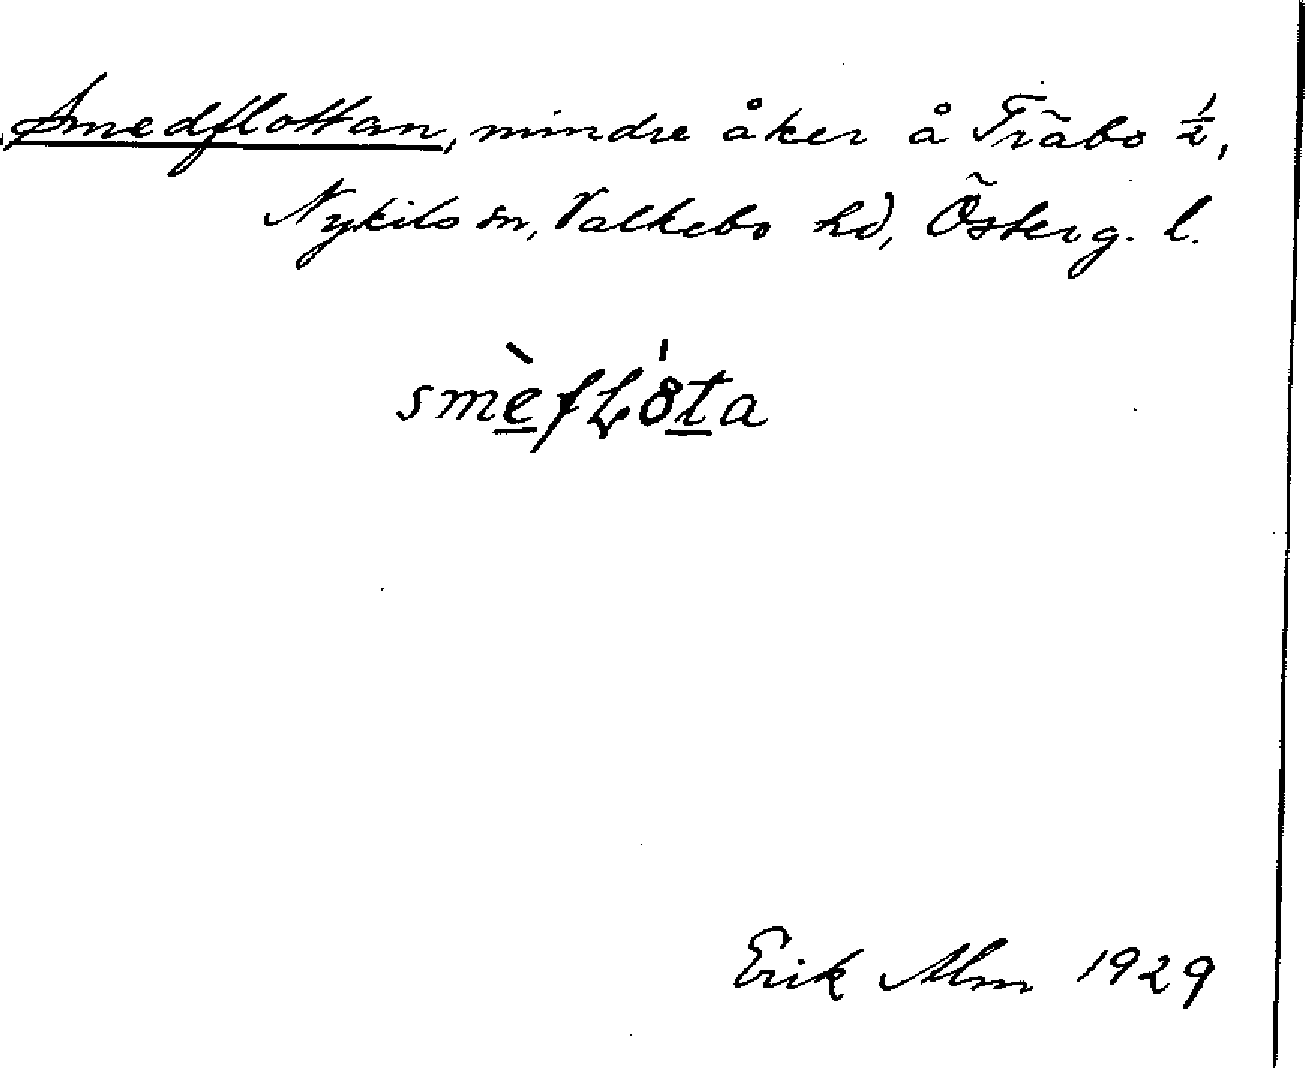 Smedflottan, mindre åker å Träbo ½,
Nykils sn, Valkebo hd, Österg. l.
Erik Alm 1929